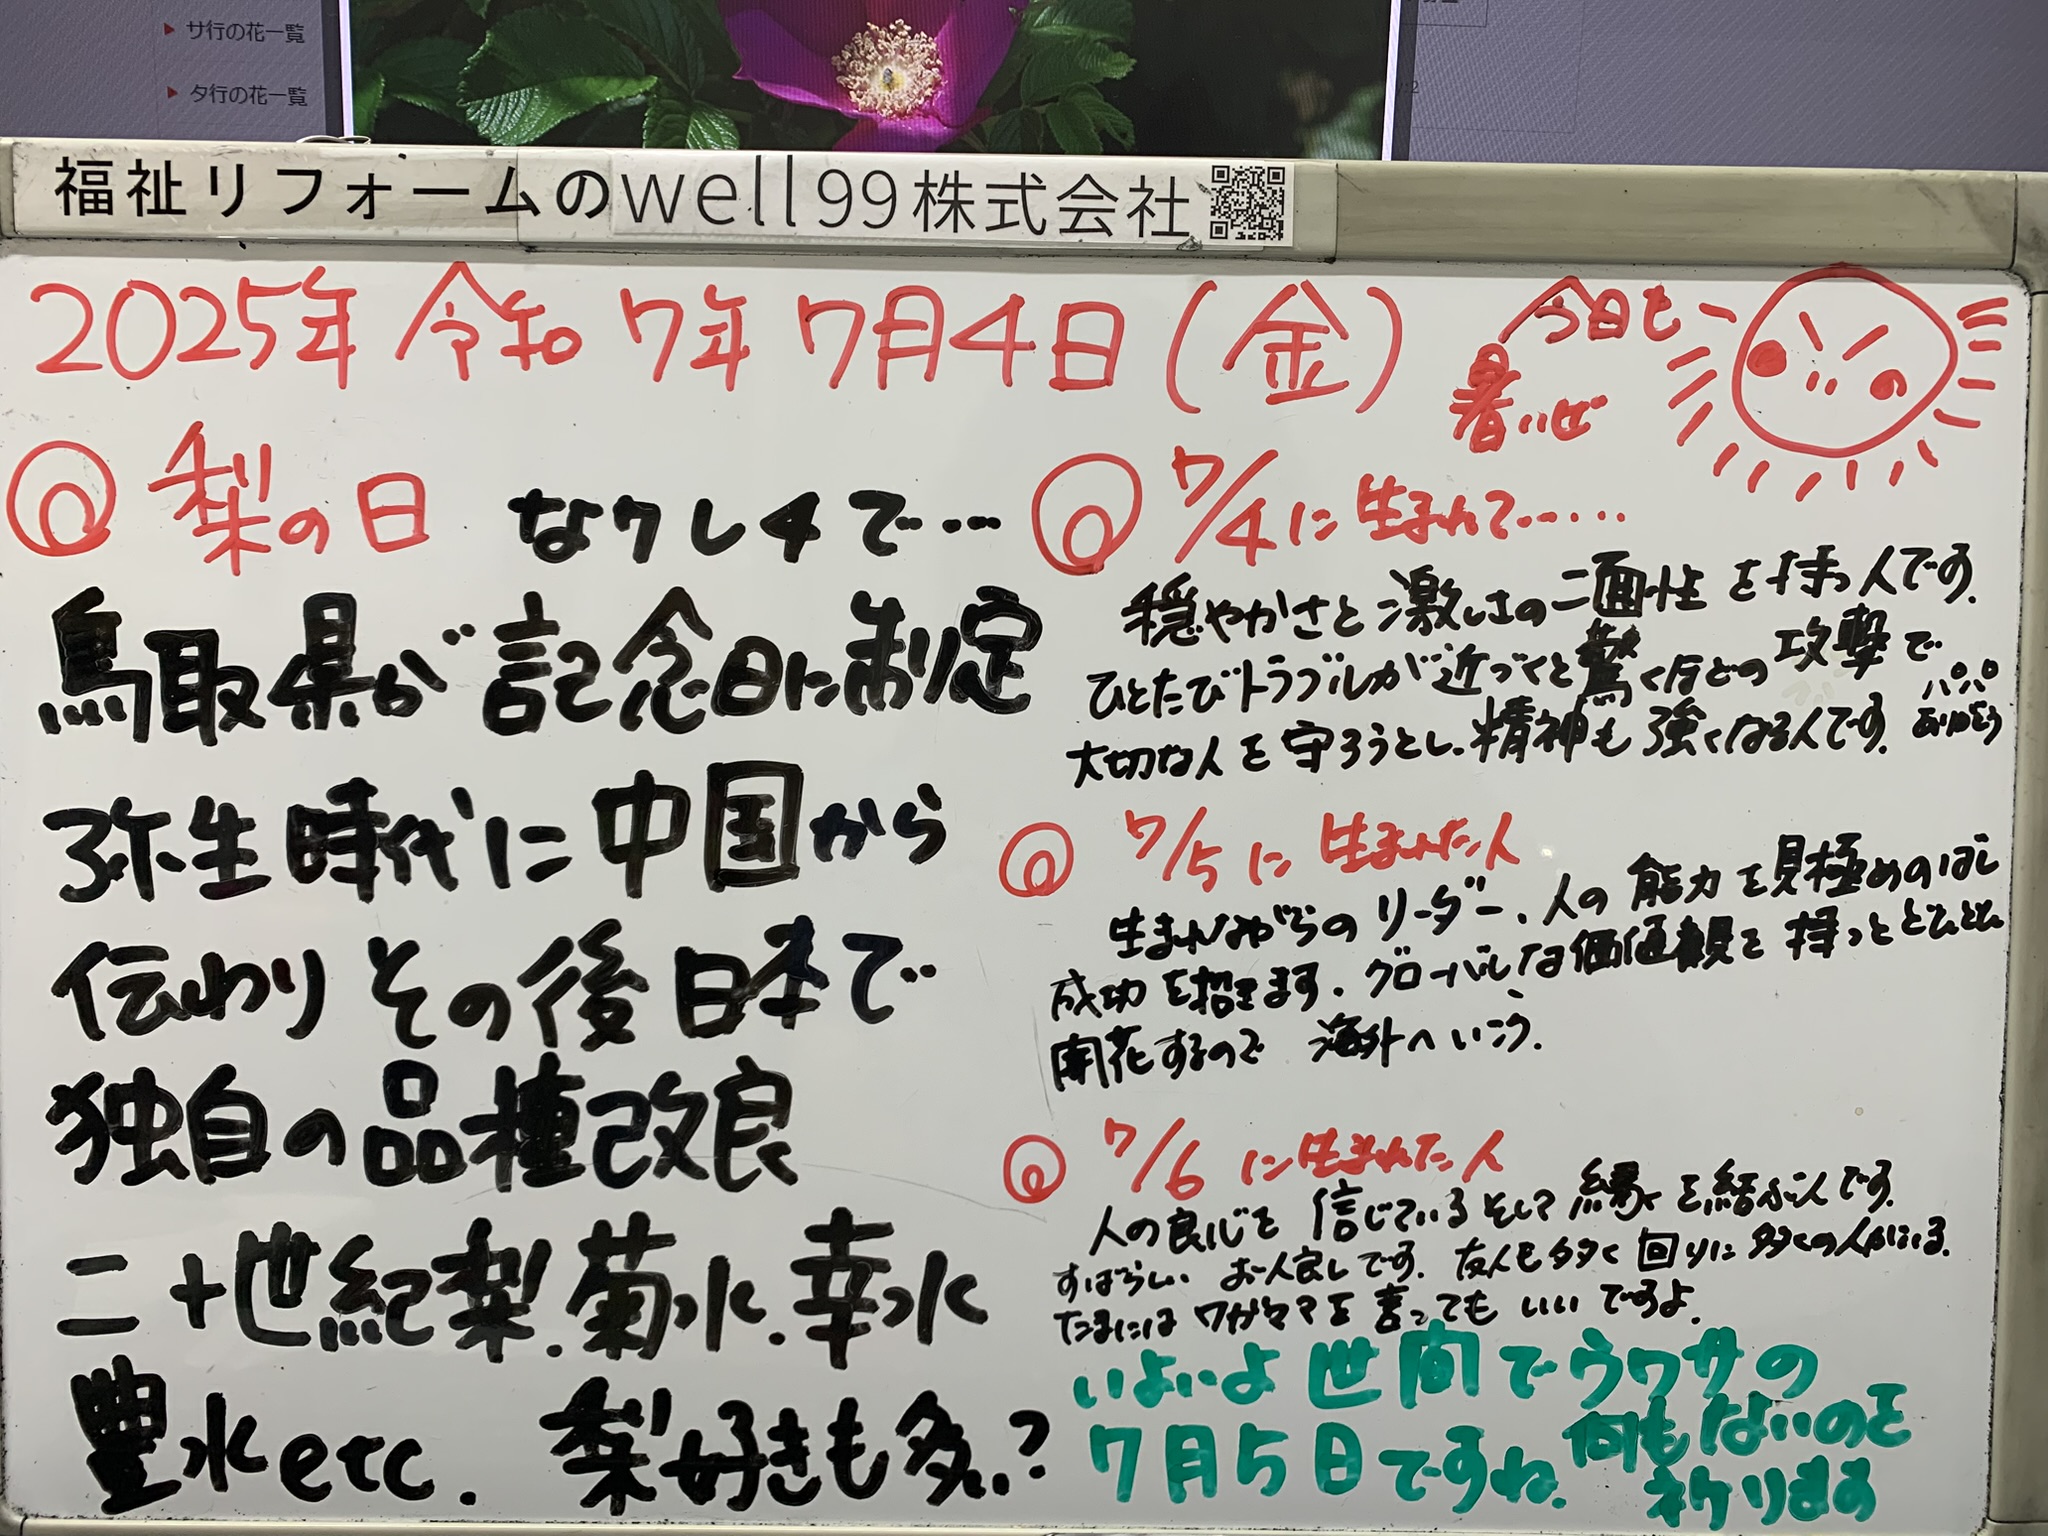 サ行の花一覧
タ行の花一覧
福祉リフォームのwell99株式会社
2025年 令和7年 7月4日(金)
今日も
暑いぜ
梨の日 な7し4で…
鳥取県が記念日に制定
弥生時代に中国から
伝わり その後日本で
独自の品種改良
二十世紀梨.菊水.幸水
豊水etc. 梨好きも多い?
7/4に生まれて……
穏やかさと激しさの二面性を持つ人です.
ひとたびトラブルが近づくと驚くほどの攻撃で
大切な人を守ろうとし.精神も強くなる人です.
パパ
ありがとう
7/5に生まれた人
生まれながらのリーダー.人の能力を見極めのばし
成功を招きます.グローバルな価値観を持つとどんどん
開花するので 海外へいこう.
7/6に生まれた人
人の良心を信じている そして縁を結ぶ人です.
すばらしい お人良しです.友人も多く回りに多くの人がいる.
たまにはワガママを言ってもいいですよ.
いよいよ世間でウワサの
7月5日ですね.
何もないのを
祈ります